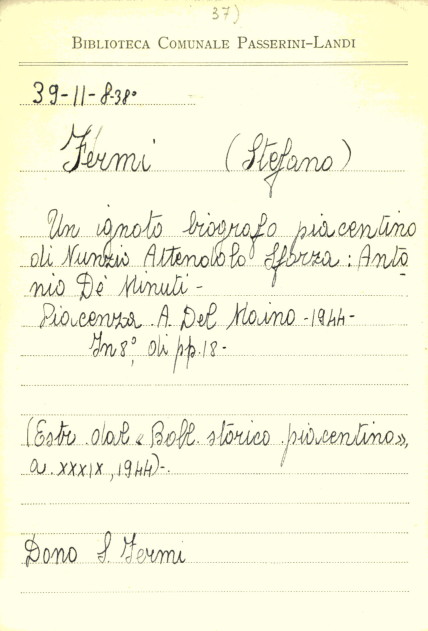 37)
BIBLIOTECA COMUNALE PASSERINI-LANDI
39-11-8-38°
Fermi (Stefano)
Un ignoto biografo piacentino
di Nunzio Attendolo Sforza: Anto
nio De' Minuti -
Piacenza. A. Del Maino - 1944 -
In 8°, di pp. 18 -
(Estr. dal « Boll. storico piacentino »,
a. XXXIX, 1944) -.
Dono S. Fermi